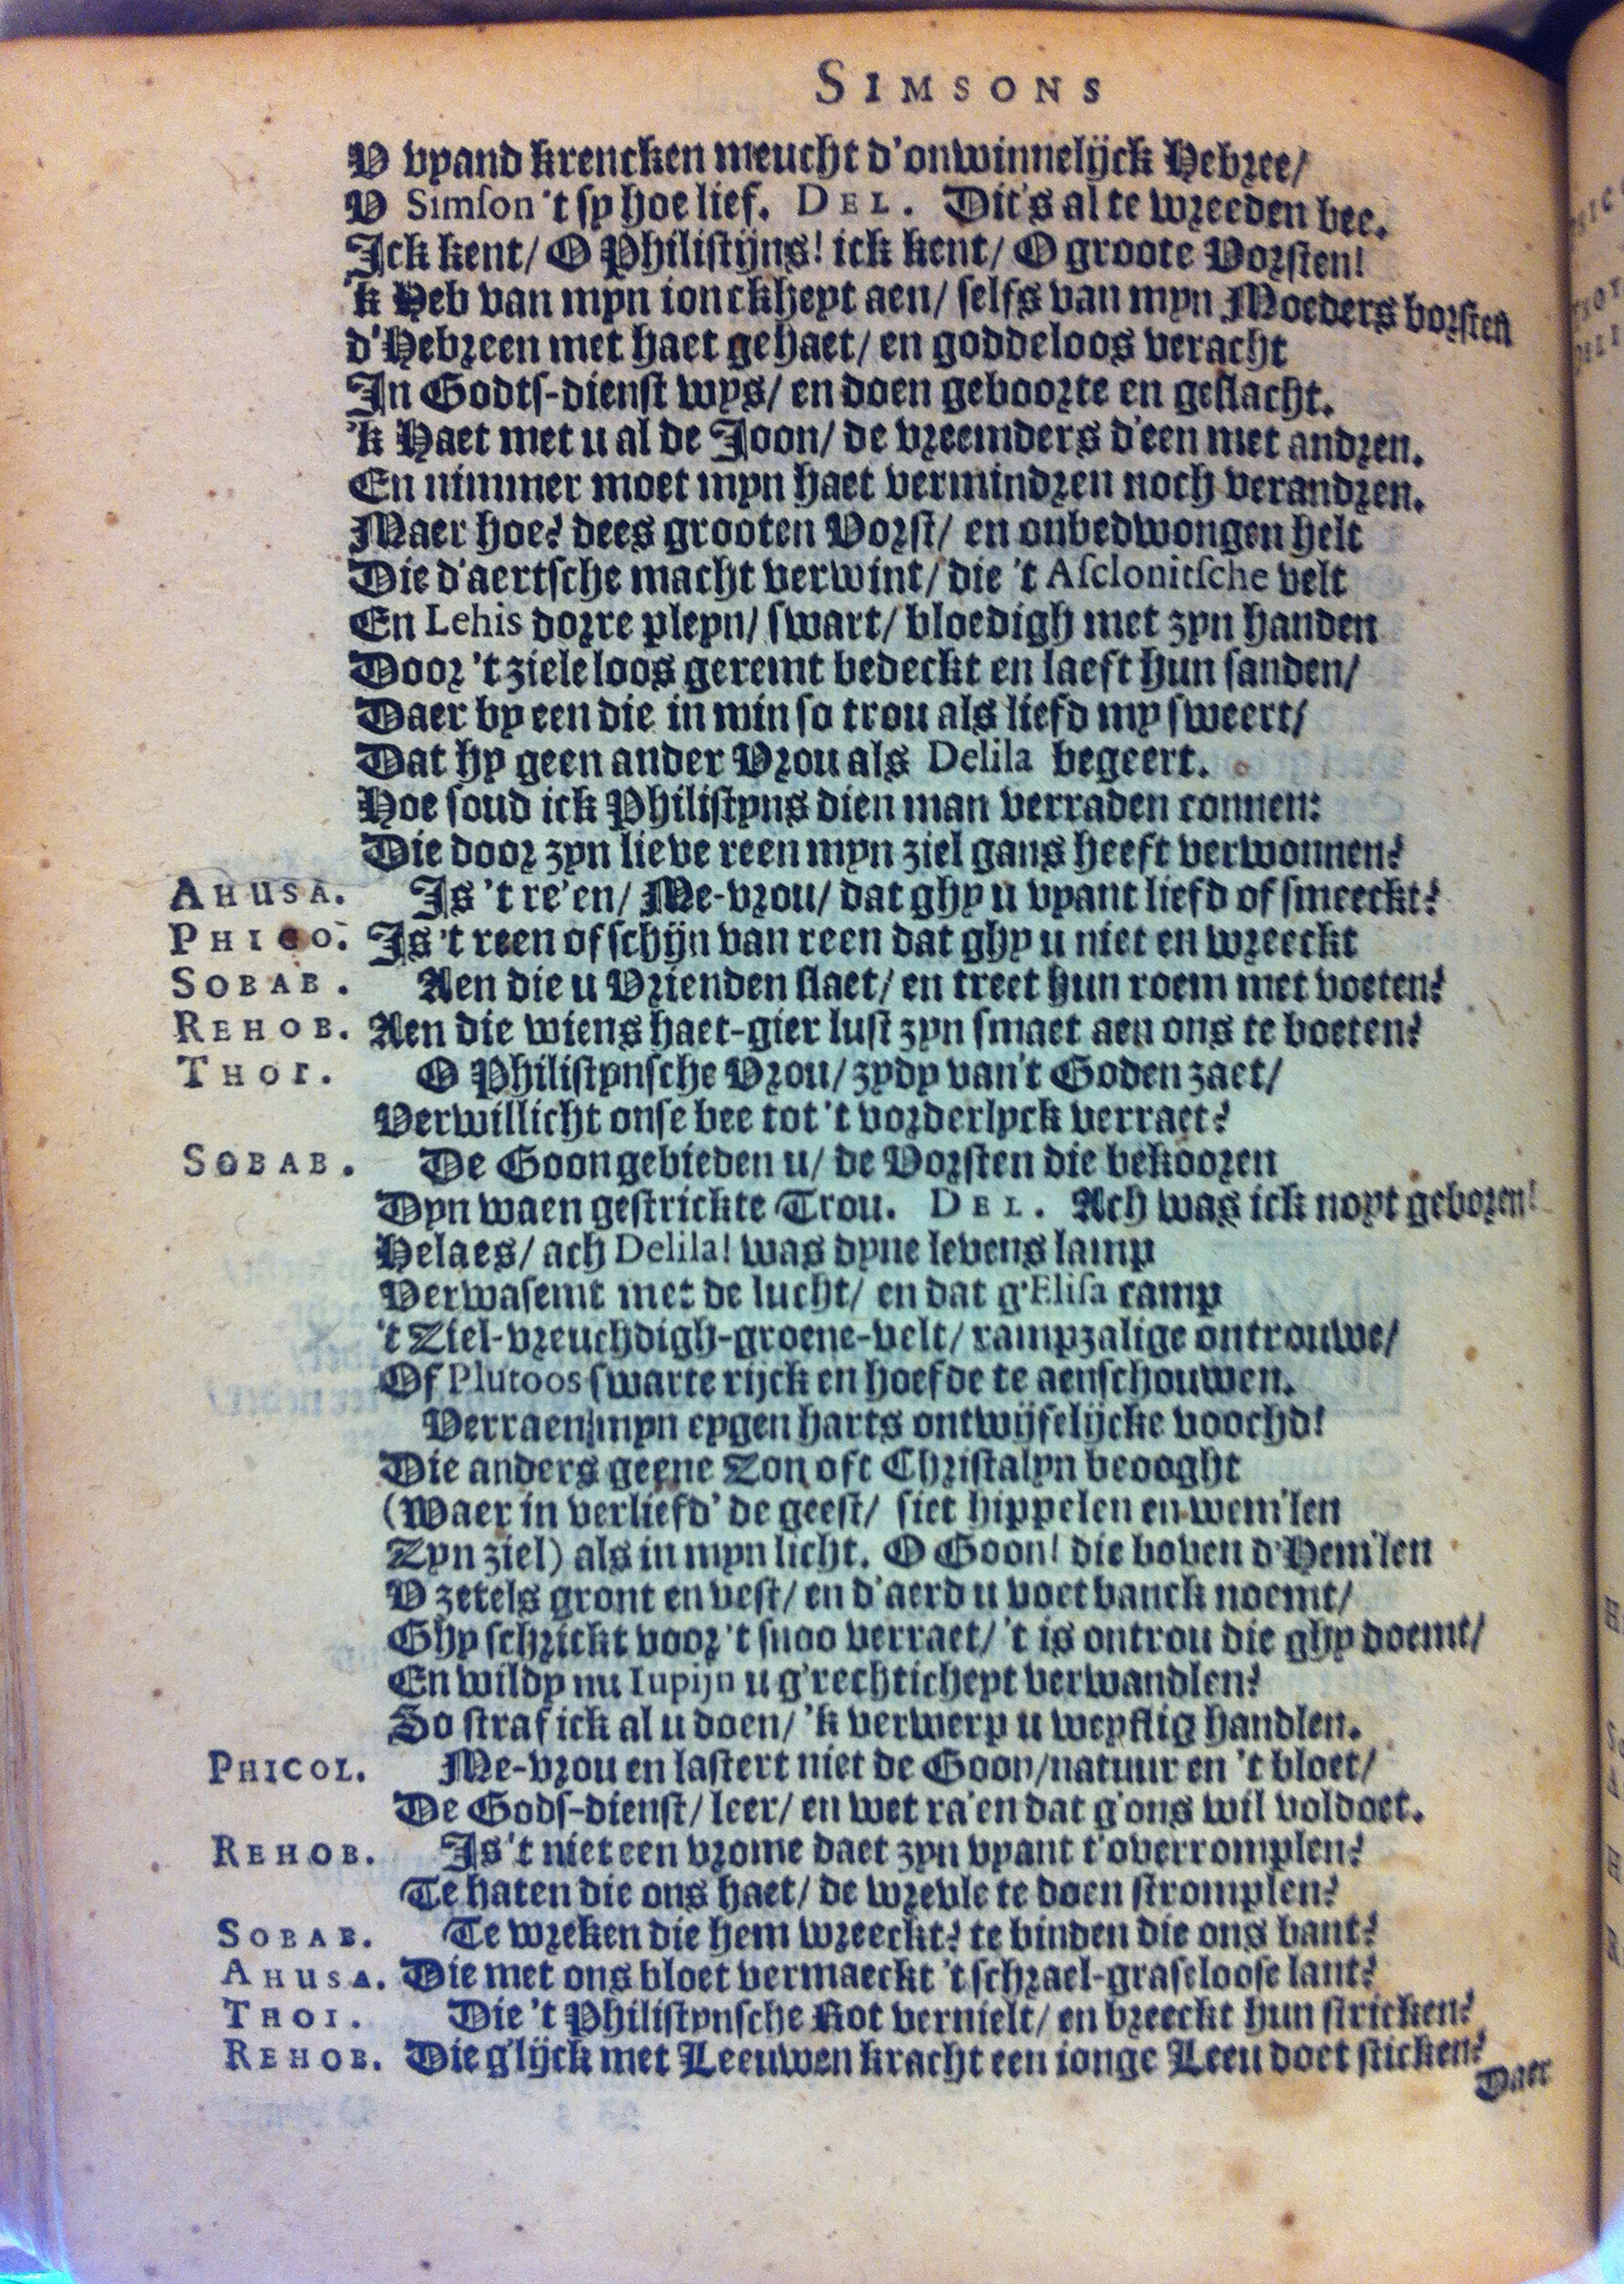 SIMSONS
V vyand krencken meucht d'onwinnelijck Hebree/
V Simson 't sy hoe lief. DEL. Dit's al te wreeden bee.
Ick kent/ O Philistijns! ick kent/ O groote Vorsten!
'k Heb van myn ionckheyt aen/ selfs van myn Moeders borsten
d'Hebreen met haet gehaet/ en goddeloos veracht
In Godts-dienst wys/ en doen geboorte en geslacht.
'k Haet met u al de Joon/ de vreemders d'een met andren.
En nimmer moet myn haet vermindren noch verandren.
Maer hoe? dees grooten Vorst/ en onbedwongen helt
Die d'aertsche macht verwint/ die 't Asclonitsche velt
En Lehis dorre pleyn/ swart/ bloedigh met zyn handen
Door 't ziele loos geremt bedeckt en laeft hun sanden/
Daer by een die in min so trou als liefd my sweert/
Dat hy geen ander Vrou als Delila begeert.
Hoe soud ick Philistyns dien man verraden connen:
Die door zyn lieve reen myn ziel gans heeft verwonnen?
AHUSA. Is 't re'en/ Me-vrou/ dat ghy u vyant liefd of smeeckt?
PHICO. Is 't reen of schijn van reen dat ghy u niet en wreeckt
SOBAB. Aen die u Vrienden slaet/ en treet hun roem met voeten?
REHOB. Aen die wiens haet-gier lust zyn smaet aen ons te boeten?
THOI. O Philistynsche Vrou/ zydy van't Goden zaet/
Verwillicht onse bee tot 't vorderlyck verraet?
SOBAB. De Goon gebieden u/ de Vorsten die bekooren
Dyn waen gestrickte Trou. DEL. Ach was ick noyt geboren!
Helaes/ ach Delila! was dyne levens lamp
Verwasemt met de lucht/ en dat g'Elisa camp
't Ziel-vreuchdigh-groene-velt/ rampzalige ontrouwe/
Of Plutoos swarte rijck en hoefde te aenschouwen.
Verraen myn eygen harts ontwijfelijcke voochd!
Die anders geene Zon oft Christalyn beooght
(Waer in verliefd' de geest/ siet hippelen en wem'len
Zyn ziel) als in myn licht. O Goon! die boven d'Hem'len
V zetels gront en vest/ en d'aerd u voet banck noemt/
Ghy schrickt voor 't snoo verraet/ 't is ontrou die ghy doemt/
En wildy nu Iupijn u g'rechticheyt verwandlen?
So straf ick al u doen/ 'k verwerp u weyflig handlen.
PHICOL. Me-vrou en lastert niet de Goon/natuur en 't bloet/
De Gods-dienst/ leer/ en wet ra'en dat g'ons wil voldoet.
REHOB. Is 't niet een vrome daet zyn vyant t'overromplen?
Te haten die ons haet/ de wrevle te doen stromplen?
SOBAB. Te wreken die hem wreeckt? te binden die ons bant?
AHUSA. Die met ons bloet vermaeckt 't schrael-graseloose lant?
THOI. Die 't Philistynsche Rot vernielt/ en breeckt hun stricken?
REHOB. Die g'lijck met Leeuwen kracht een ionge Leeu doet sticken?
Daer